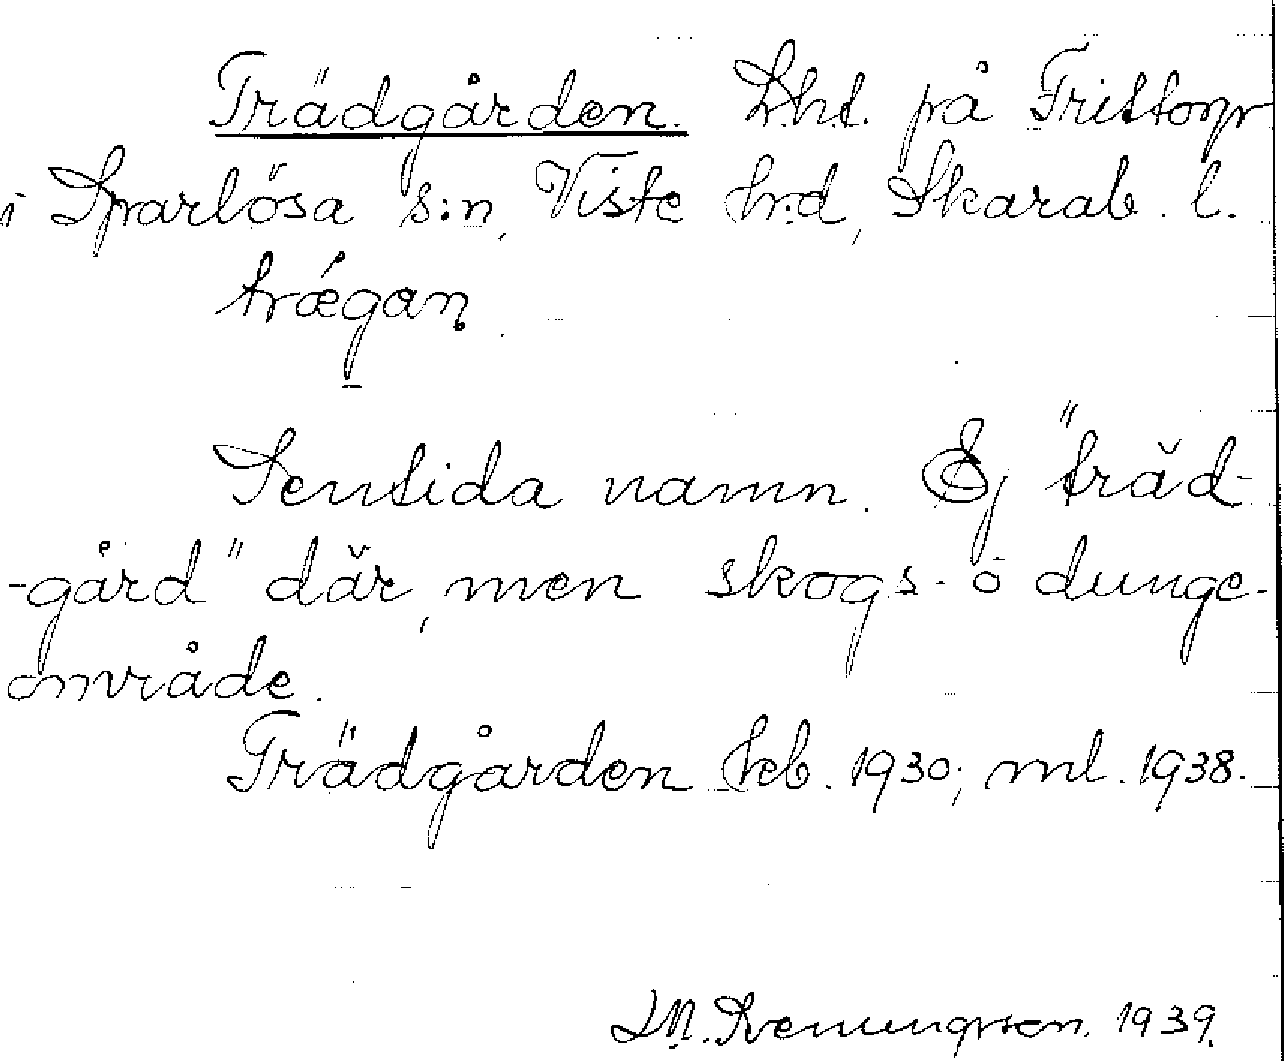 Trädgården. Lht. på Trittorp
i Sparlösa s:n, Viste h:d, Skarab. l.
trǽgan
Sentida namn. Ej "träd-
-gård" där, men skogs- o dunge-
område.
Trädgården keb. 1930; ml. 1938.
1939.